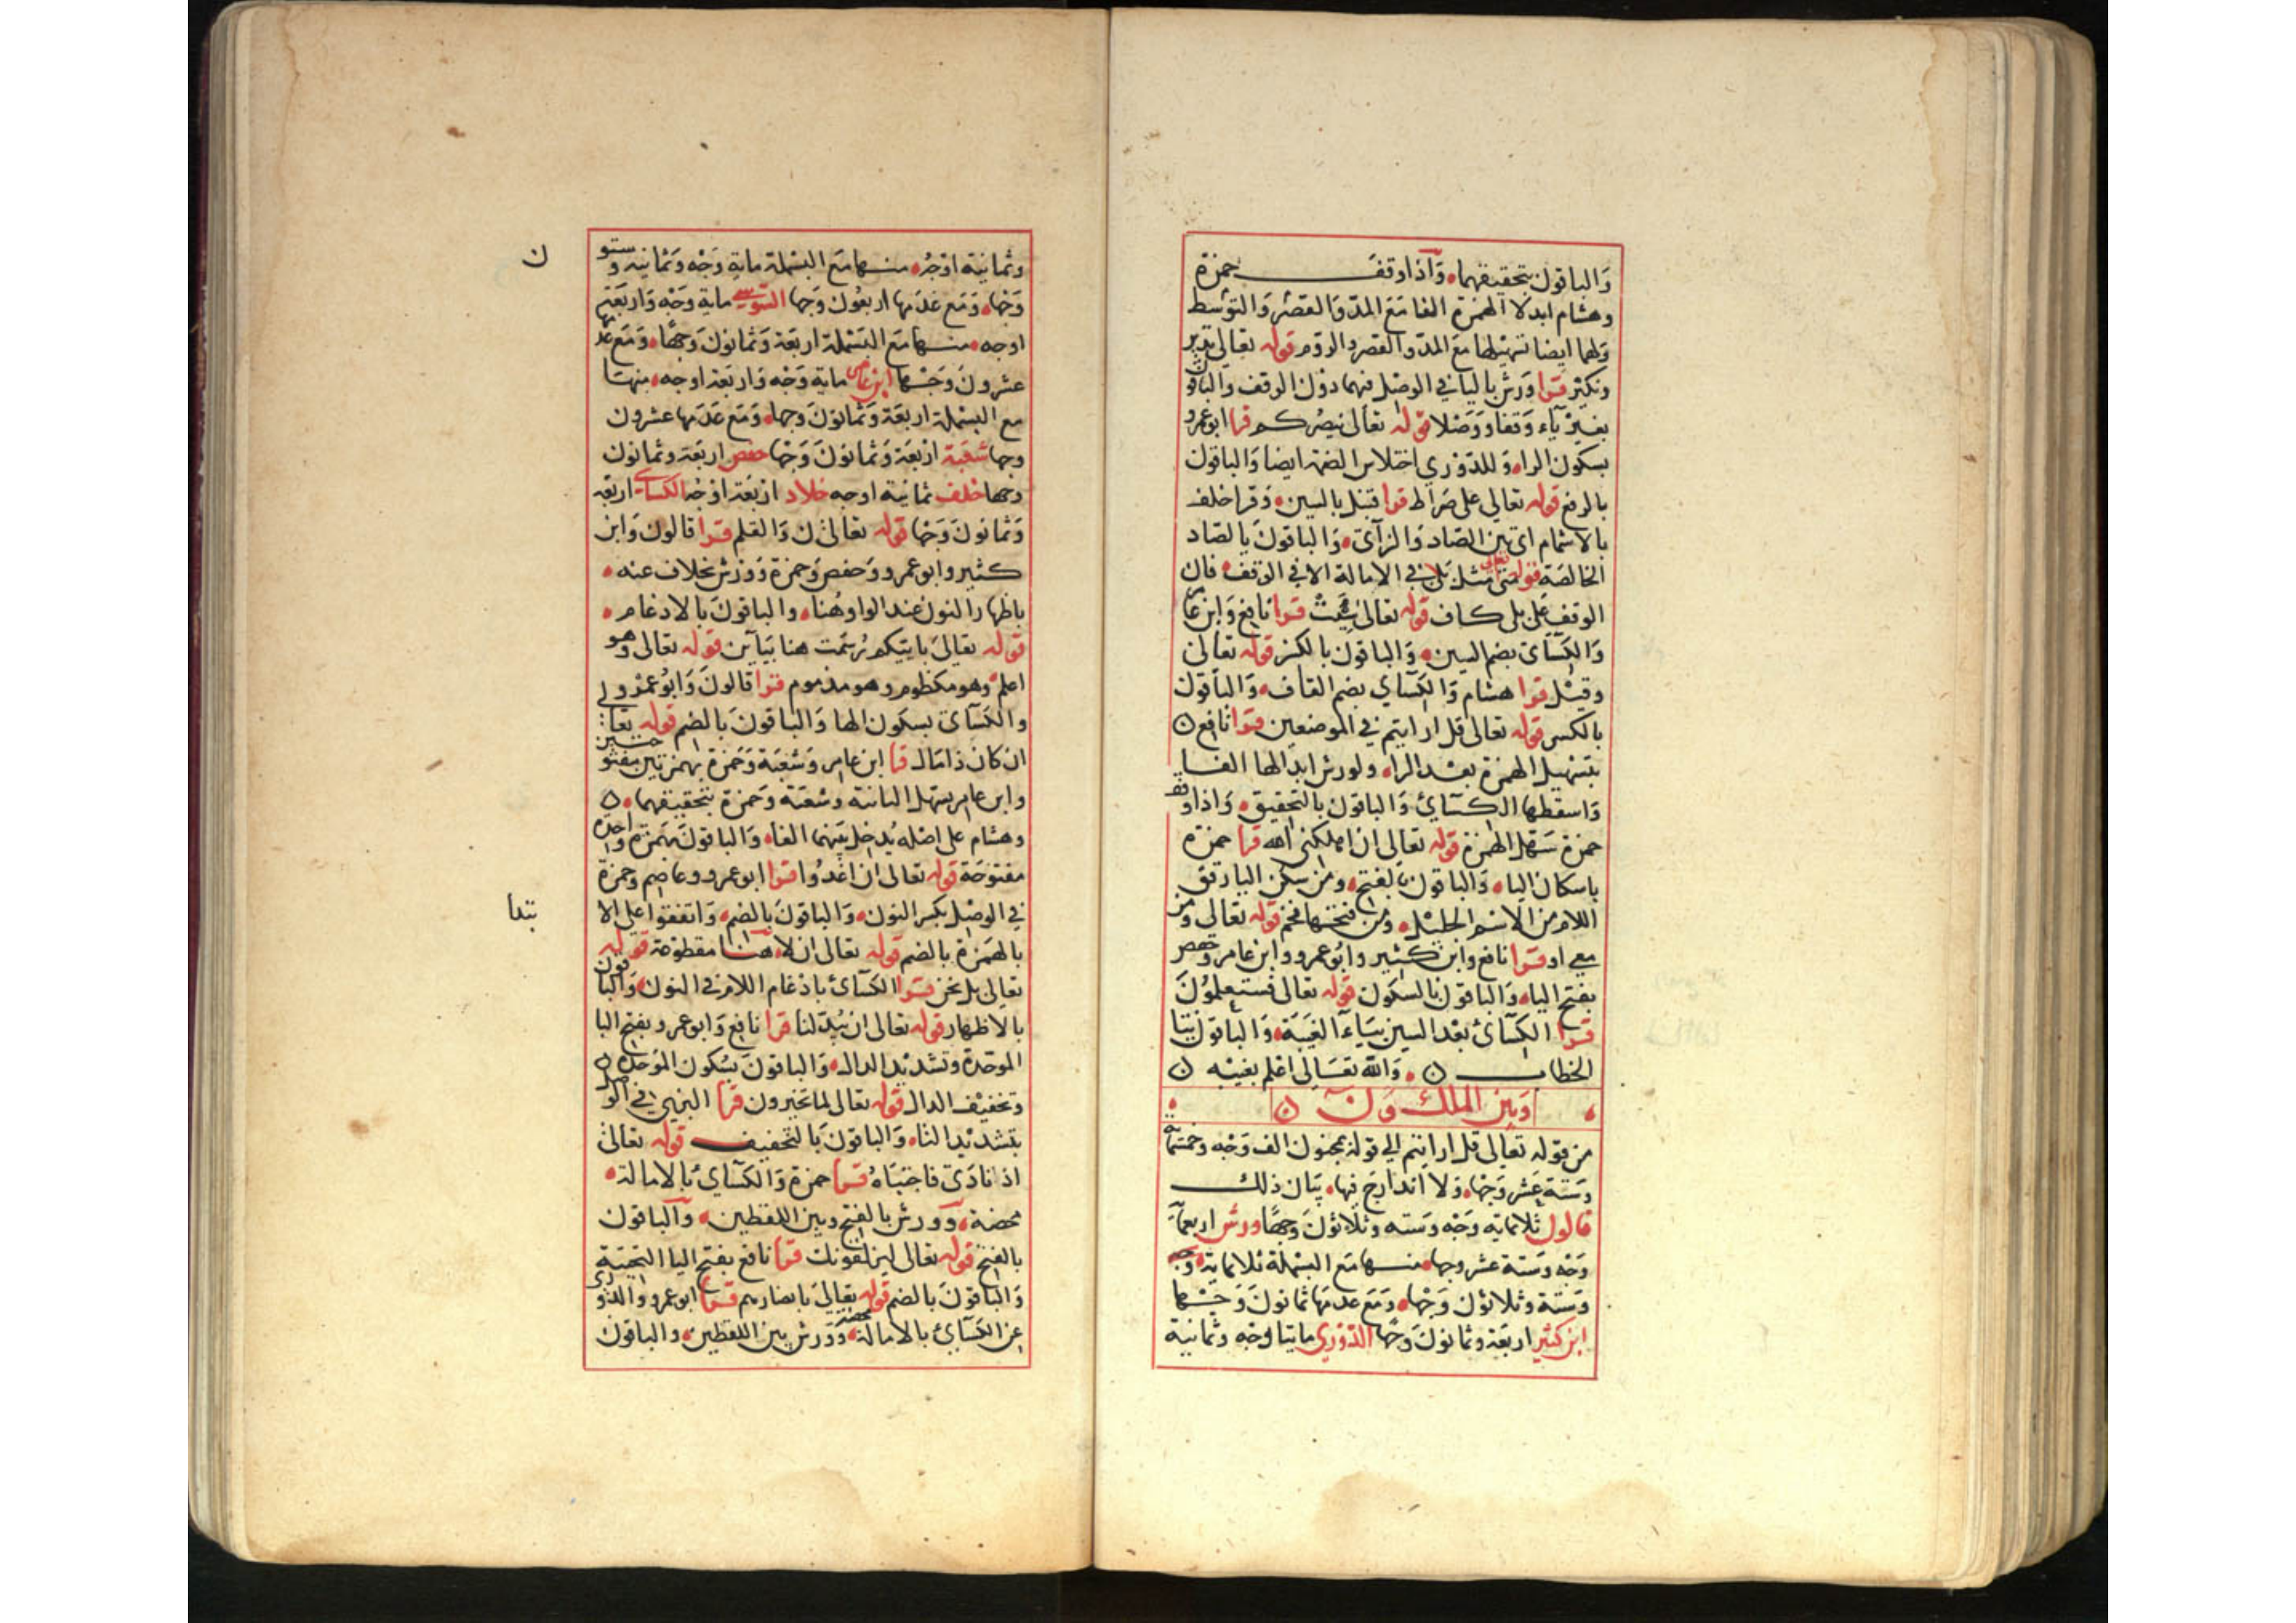 وَالباقون بتحقيقهما، وَآذا وقفَ حمزة
وهشام ابدلا الهمزة الفا مَعَ المدّ وَالقصْر وَالتوسّط
وَلهما ايضا تسهيلها معَ المدّ والقصر والروم قوله تعالى نذير
ونكير قرا وَرش باليا في الوصْل فيهما دوْن الوقف والباقون
بغيْر يآء وَقفا وَوَصْلا قوله تعالى ينصُركم قرا ابو عمرو
بسكون الراء وَللدّوْري اختلاس الضمّة ايضا وَالباقون
بالرفع قوله تعالى على صِرَاط قرا قنبل بالسين، وَقرا خلف
بالاشمام اى بيْن الصّاد وَالزآى، وَالباقونَ بالصّاد
الخالصَة قوله تعالى متى مثل بلى في الامالة الا في الوقف، فان
الوقفَ على بلى كاف قوله تعالى سِيْئتْ قرا نافع وَابن عامر
وَالكسَآى بضم السين، وَالباقون بالكسْر قوله تعالى
وقيْل قرا هشام وَالكسَآي بضم القاف، وَالباقون
بالكسر قوله تعالى قل ارايتم في الموضعين قرا نافع ن
بتسهيل الهمزة بعْد الراء ولورش ابدالها الفا
وَاسقطها الكسَآئ وَالباقون بالتحقيق، وَاذا وقف
حمزة سَهّل الهمْزة قوله تعالى ان اهلكنى الله قرا حمزة
باسكان الياء، وَالباقون بالفتح، ومن سكن اليا رقق
اللام من الاسْم الجليْل، ومن فتحها فخم قوله تعالى ومن
معى او قرا نافع وابن كثير وابُو عمرو وابن عامر وحفص
بفتح الياء، وَالباقون بالسكون قوله تعالى فستعلموُنَ
قرا الكسَآئ بعْد السين بيَآء الغيبَة، وَالباقون بتا
الخطاب ن، وَالله تعَالى اعْلم بغيْبه ن
وَبَين الملك وَن ن
من قوله تعالى قل ارايتم الي قوله بمجنون الف وَجْه وخمسمائة
وَستة عَشر وَجْها، وَلا اندارجَ فيها، بيَان ذلك
قالون ثلاثماية وَجْه وَسته وَثلاثوْنَ وَجهًا ورش اربعمآية
وَجْه وَستة عشر وجها، منها مَع البسْملة ثلاثماية وَجه
وَستة وَثلاثوْن وَجْها، وَمَعَ عدَمها ثمانونَ وَجْها
ابن كثير اربَعَة وثمانونَ وَجْها الدّوْري مايتا وَجْه وَثمانية
وثمانيَة اوْجُه، منها مَعَ البسْملة مايةِ وَجْه وَثمانية وستون
وَجْها، وَمَع عَدَمها اربَعُون وَجها السّوسي ماية وَجْه وَاربَعَة
اوجه، منها مَعَ البسْملة اربَعَة وَثمانونَ وَجْهًا، وَمَع عدمها
عشرونَ وَجْها ابن عامر ماية وَجْه وَاربَعَة اوجه، منها
مع البسْملة اربَعَة وَثمانونَ وَجها، وَمَع عَدَمها عشرون
وجها شعْبَة ارْبَعَة وَثمانونَ وَجْها حفص اربَعَة وثمانون
وجها خلف ثمانية اوجه خلاد ارْبَعَة اوْجه الكسَآى اربعة
وَثمانونَ وَجْها قوله تعالى ن وَالقلم قرا قالون وَابن
كثير وابو عمرو وَحفص وَحمزة وَوَرْش بخلاف عنه،
باظهار النون عند الواو هُنا، والباقونَ بالادغام،
قوله تعالىَ باييّكم رُسَمت هنا بيآين قوله تعالى وهو
اعلم، وهو مكظوم، وهو مذموم قرا قالونَ وَابُو عَمْرو
والكسَآى بسكون الها وَالباقونَ بالضم قوله تعا:
ان كان ذا مَال قرا ابن عامر وَشعْبَة وَحَمزة بهمزتين مفتوحتين
وابن عامر يسهّل الثانية وشعْبَة وَحمزة بتحقيقهما، ن
وهشام على اصْله يُدخل بيَنهما الفا، وَالباقونَ بهَمزة واحدة
مفتوحَة قوله تعالى ان اغدُوا قرا ابو عمرو وعاصم وحمزة
في الوصْل بكسر النون، وَالباقونَ بالضم، وَاتفقوا على الا
بتدا
بالهَمْزة بالضم قوله تعالى ان لا، هنا مقطوعة قوله
تعالى بل نحن قرا الكسَآئ بادْغام اللام في النون، وَالباقون
بالاظهار قوله تعالى ان يُبْدلنا قرا نافع وَابو عمرو بفتح البا
الموَحّدة وَتشديْد الدال، وَالباقونَ بسُكون الموَحدة ن
وتخفيْف الدال قوله تعالى لما تخيرون قرا البزيّ في الوصل
بتشديْد التاء، وَالباقونَ بَالتخفيف قوله تعالى
اذ نادَى فاجتبَاهُ قرا حمزة وَالكسَآئ بالامالة،
محضة، وَورش بالفتح وبين اللفظين، وَالباقون
بالفتح قوله تعالى ليزلقونك قرا نافع بفتح اليا التحتيَة
وَالباقونَ بالضم قوله تعالىَ بابصارهم قرا ابو عمرو وَالدّوري
عن الكسَآئ بالامالة محضة، وَوَرش بين اللفظين، والباقون